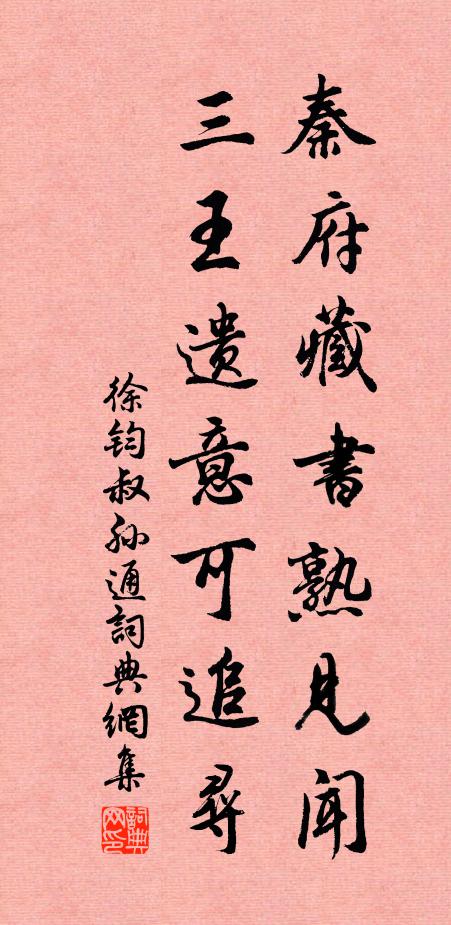 秦府藏書熟見闻
三王遗意可追尋
徐鈞叔孙通詞典網集
詞典网印